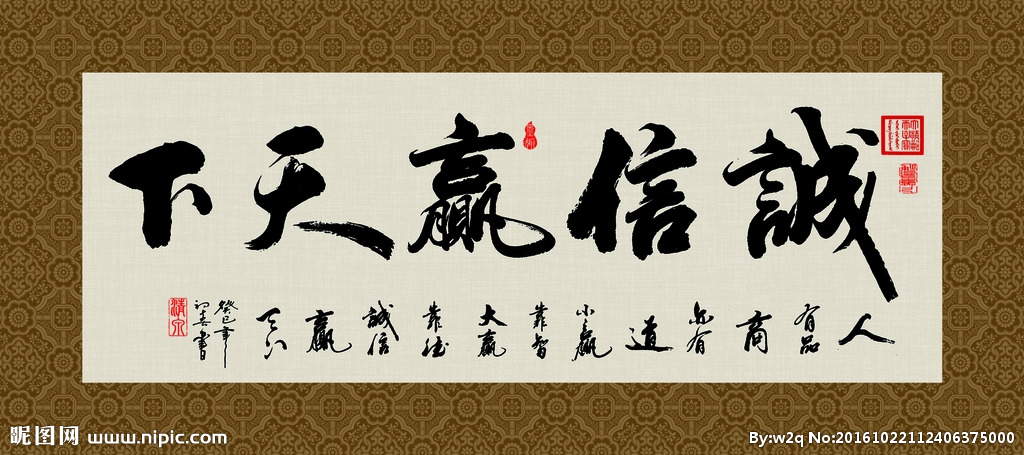 誠信贏天下
人有品商亦有道小贏靠智大贏靠德誠信贏天下
癸巳年
初春書
昵图网 www.nipic.com
By:w2q No:20161022112406375000